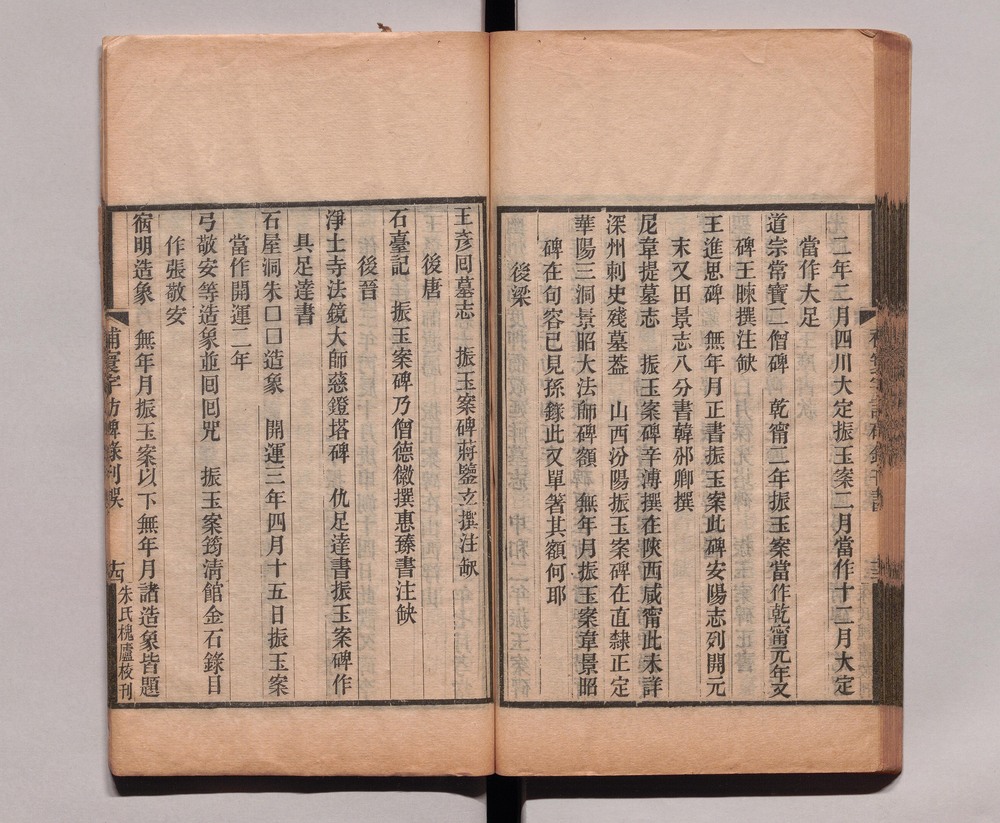 二年二月四川大定振玉案二月當作十二月大定
當作大足
道宗常寶二僧碑　乾甯二年振玉案當作乾甯元年又
碑王悚撰注缺
王進思碑　無年月正書振玉案此碑安陽志列開元
末又田景志八分書韓邠卿撰
尼韋提墓志　振玉案碑辛溥撰在陝西咸甯此未詳
深州刺史殘墓葢　山西汾陽振玉案碑在直隸正定
華陽三洞景昭大法師碑額　無年月振玉案韋景昭
碑在句容已見孫錄此又單著其額何耶
後梁
王彥囘墓志　振玉案碑蔣鑒立撰注缺
後唐
石臺記　振玉案碑乃僧德徽撰惠臻書注缺
後晉
淨土寺法鏡大師慈鐙塔碑　仇足達書振玉案碑作
具足達書
石屋洞朱口口造象　開運三年四月十五日振玉案
當作開運二年
弓敬安等造象並囘囘咒　振玉案筠淸館金石錄目
作張敬安
宿明造象　無年月振玉案以下無年月諸造象皆題
補寰宇訪碑錄刊誤
十四
朱氏槐廬校刊